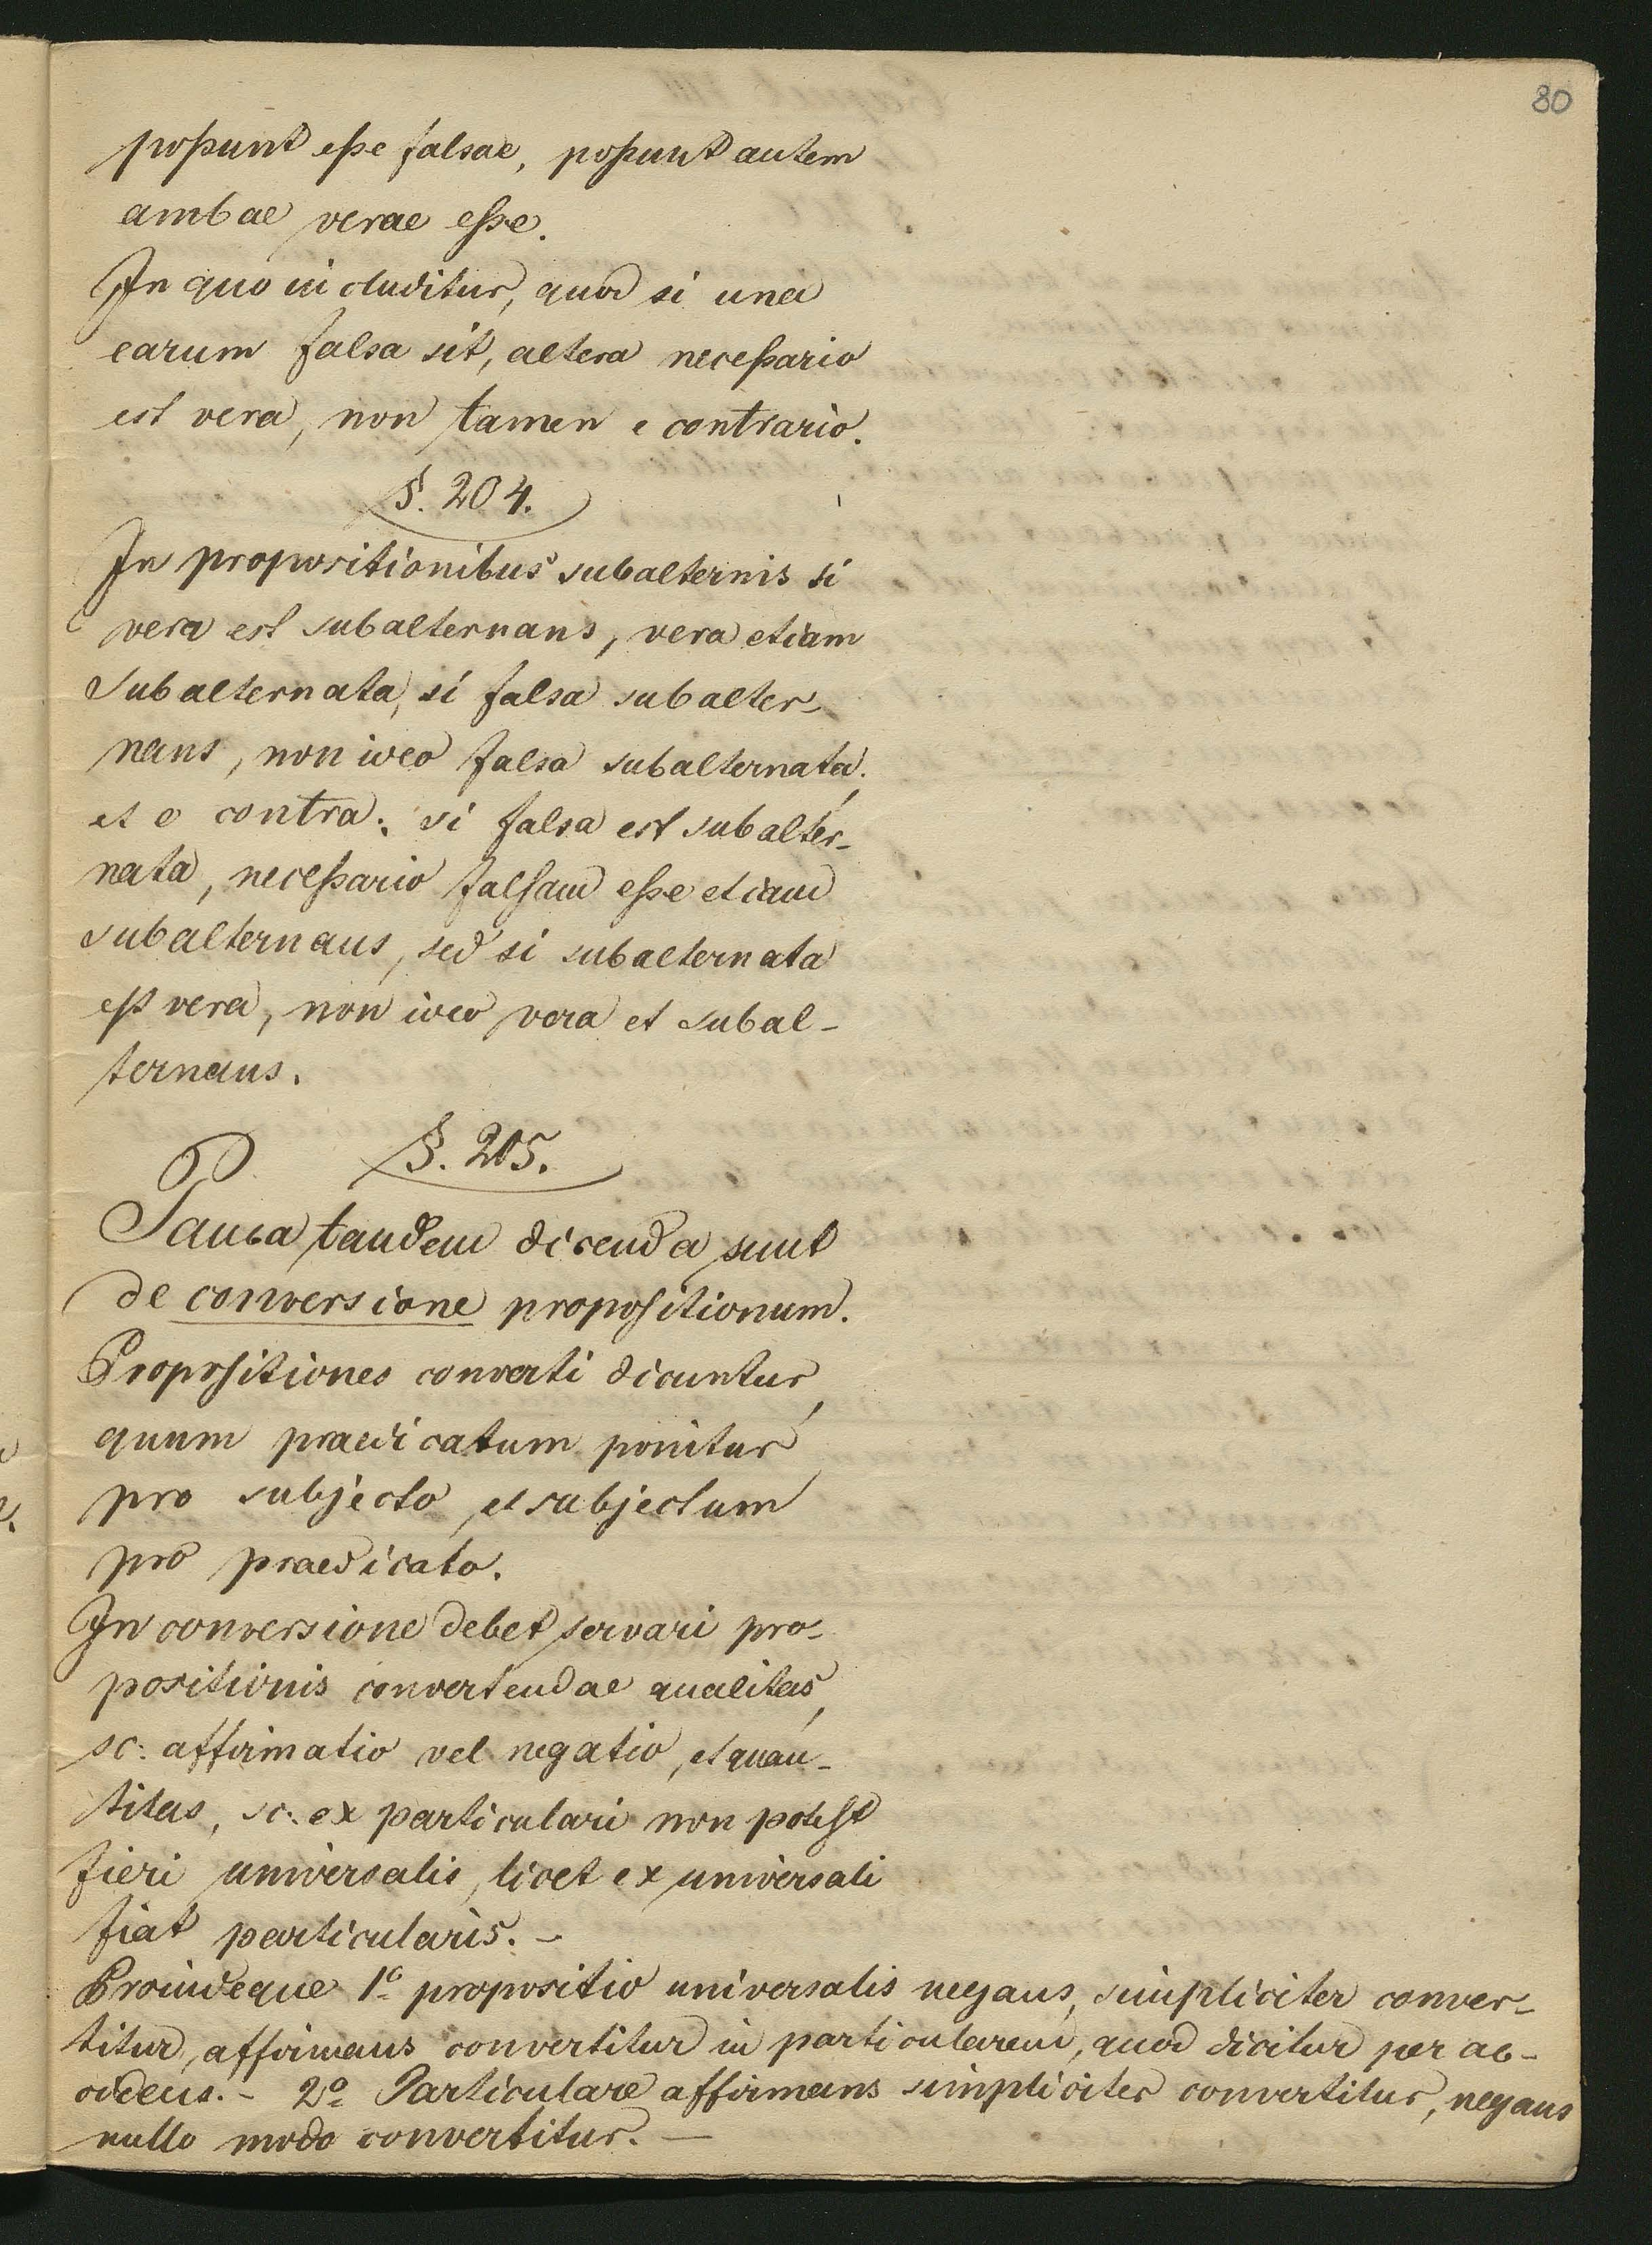 80
possunt esse falsae, possunt autem
ambae verae esse.
In quo includitur, quod si una
earum falsa sit, altera necessario
est vera, non tamen e contrario.
§. 204.
In propositionibus subalternis si
vera est subalternans, vera etiam
subalternata, si falsa subalter-
nans, non ideo falsa subalternata,
et e contra: si falsa est subalter-
nata, necessario falsam esse etiam
subalternans, sed si subalternata
est vera, non ideo vera et subal-
ternans.
§. 205.
Pauca tandem dicenda sunt
de conversione propositionum.
Propositiones converti dicuntur,
quum praedicatum ponitur
pro subjecto, et subjectum
pro praedicato.
In conversione debet servari pro-
positionis convertendae qualitas,
sc. affirmatio vel negatio, et quan-
titas, sc. ex particulari non potest
fieri universalis, licet ex universali
fiat particularis. -
Proindeque 1o propositio universalis negans, simpliciter conver-
titur, affirmans convertitur in particularem, quod dicitur per ac-
cidens. - 2o Particulare affirmans simpliciter convertitur, negans
nullo modo convertitur. -